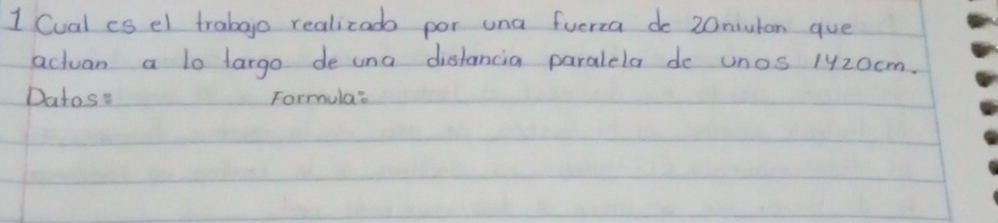 1 Cual es el trabajo realizado por una fuerza de 20niuton que
actuan a lo largo de una distancia paralela de unos 1420cm.
Datos: Formula: